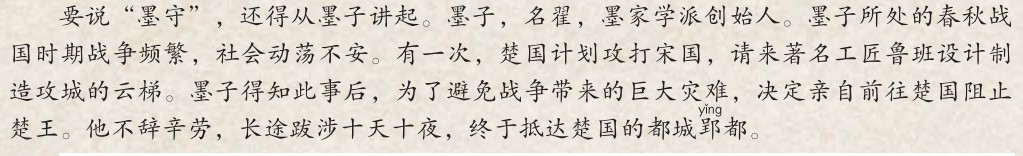 要说“墨守”，还得从墨子讲起。墨子，名翟，墨家学派创始人。墨子所处的春秋战
国时期战争频繁，社会动荡不安。有一次，楚国计划攻打宋国，请来著名工匠鲁班设计制
造攻城的云梯。墨子得知此事后，为了避免战争带来的巨大灾难，决定亲自前往楚国阻止
yǐng
楚王。他不辞辛劳，长途跋涉十天十夜，终于抵达楚国的都城郢都。